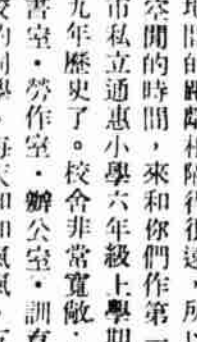 地間的距離相隔得很遠，所以
空閒的時間，來和你們作第一
市私立通惠小學六年級上學期
九年歷史了。校舍非常寬敞．
書室．勞作室．辦公室．訓育
的同學，每天和和氣氣，